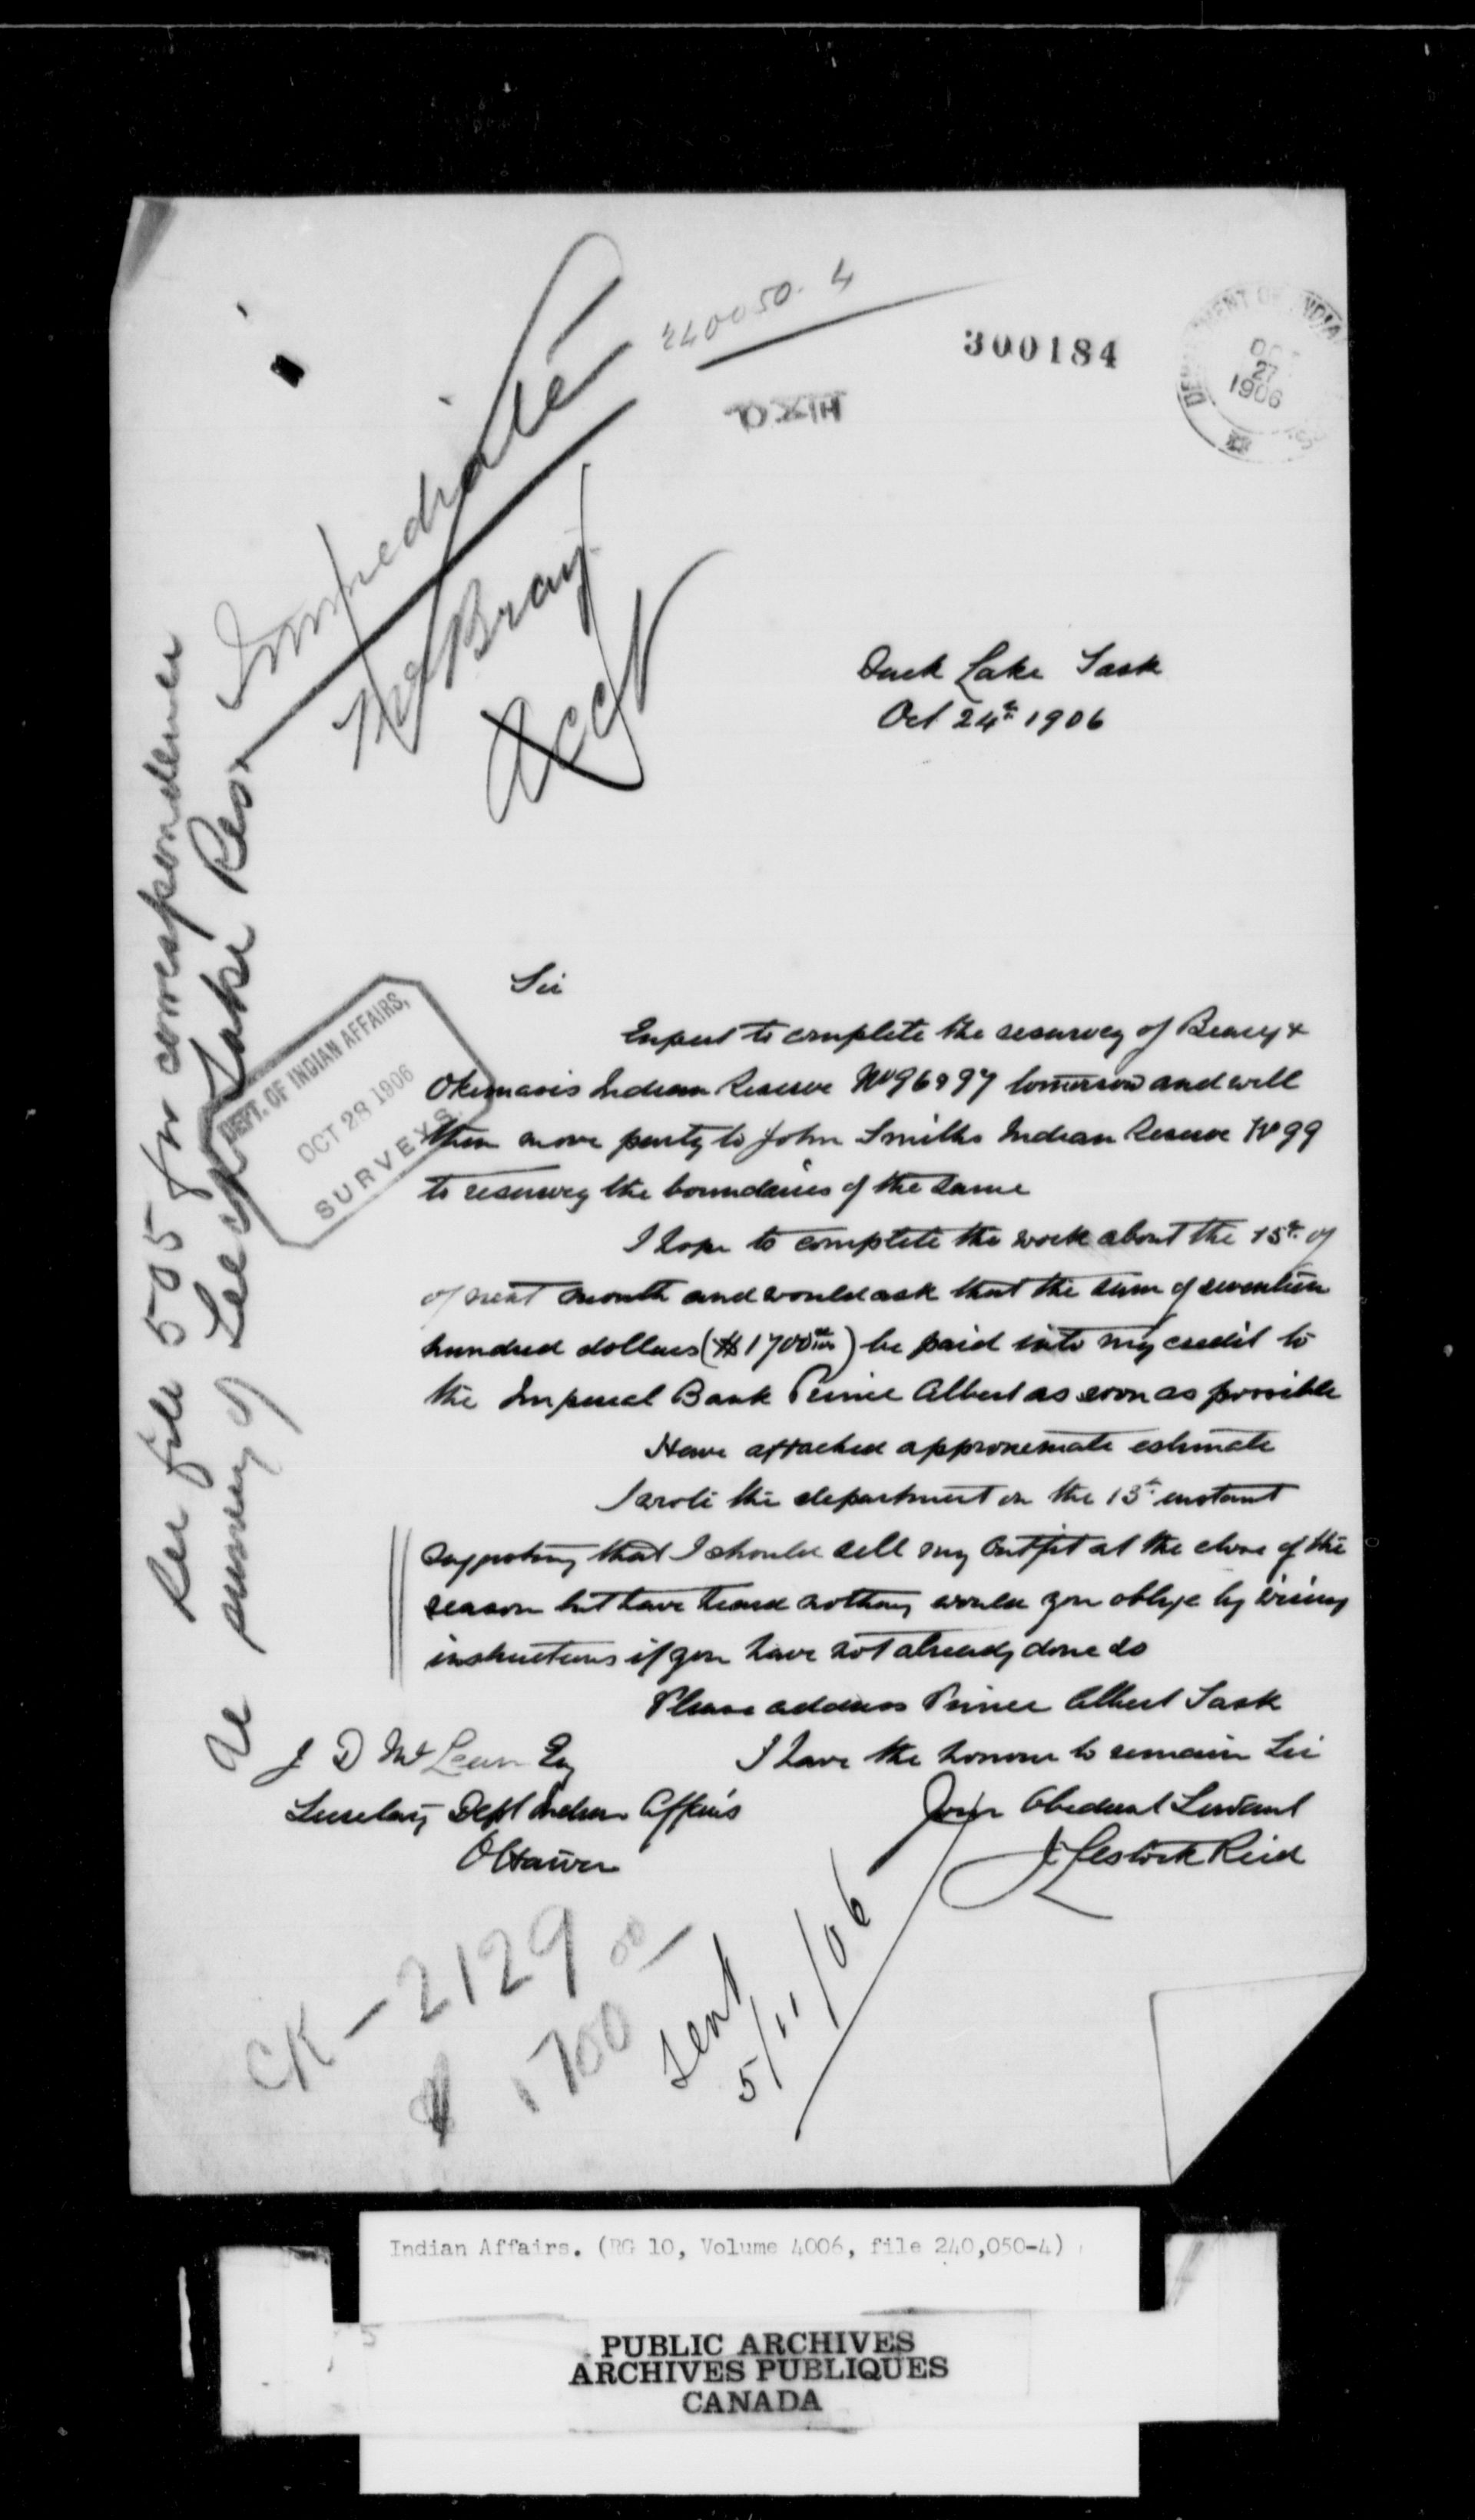 240050-4
300184
DEPARTMENT OF INDIAN
OCT
27
1906
Immediate
Mr Bray
Acct
Duck Lake Sask
Oct 24th 1906
See file 505 for correspondence
re survey of Leech Lake Res.
DEPT. OF INDIAN AFFAIRS,
OCT 28 1906
SURVEYS.
Sir
Expect to complete the resurvey of Beardy &
Okemasis Indian Reserve No 96 & 97 tomorrow and will
then move party to John Smiths Indian Reserve No 99
to resurvey the boundaries of the same
I hope to complete the work about the 15th of
of next month and would ask that the sum of seventeen
hundred dollars ($1700 00/100) be paid into my credit to
the Imperial Bank Prince Albert as soon as possible
Have attached approximate estimate
I wrote the department on the 13th instant
suggesting that I should sell my outfit at the close of the
season but have heard nothing would you oblige by wiring
instructions if you have not already done so
Please address Prince Albert Sask
I have the honour to remain Sir
Your Obedient Servant
J Lestock Reid
J D McLean Esq
Secretary Dept Indian Affairs
Ottawa
CK - 2129
$ 1700 00
Sent
5/11/06
Indian Affairs. (RG 10, Volume 4006, file 240,050-4)
PUBLIC ARCHIVES
ARCHIVES PUBLIQUES
CANADA